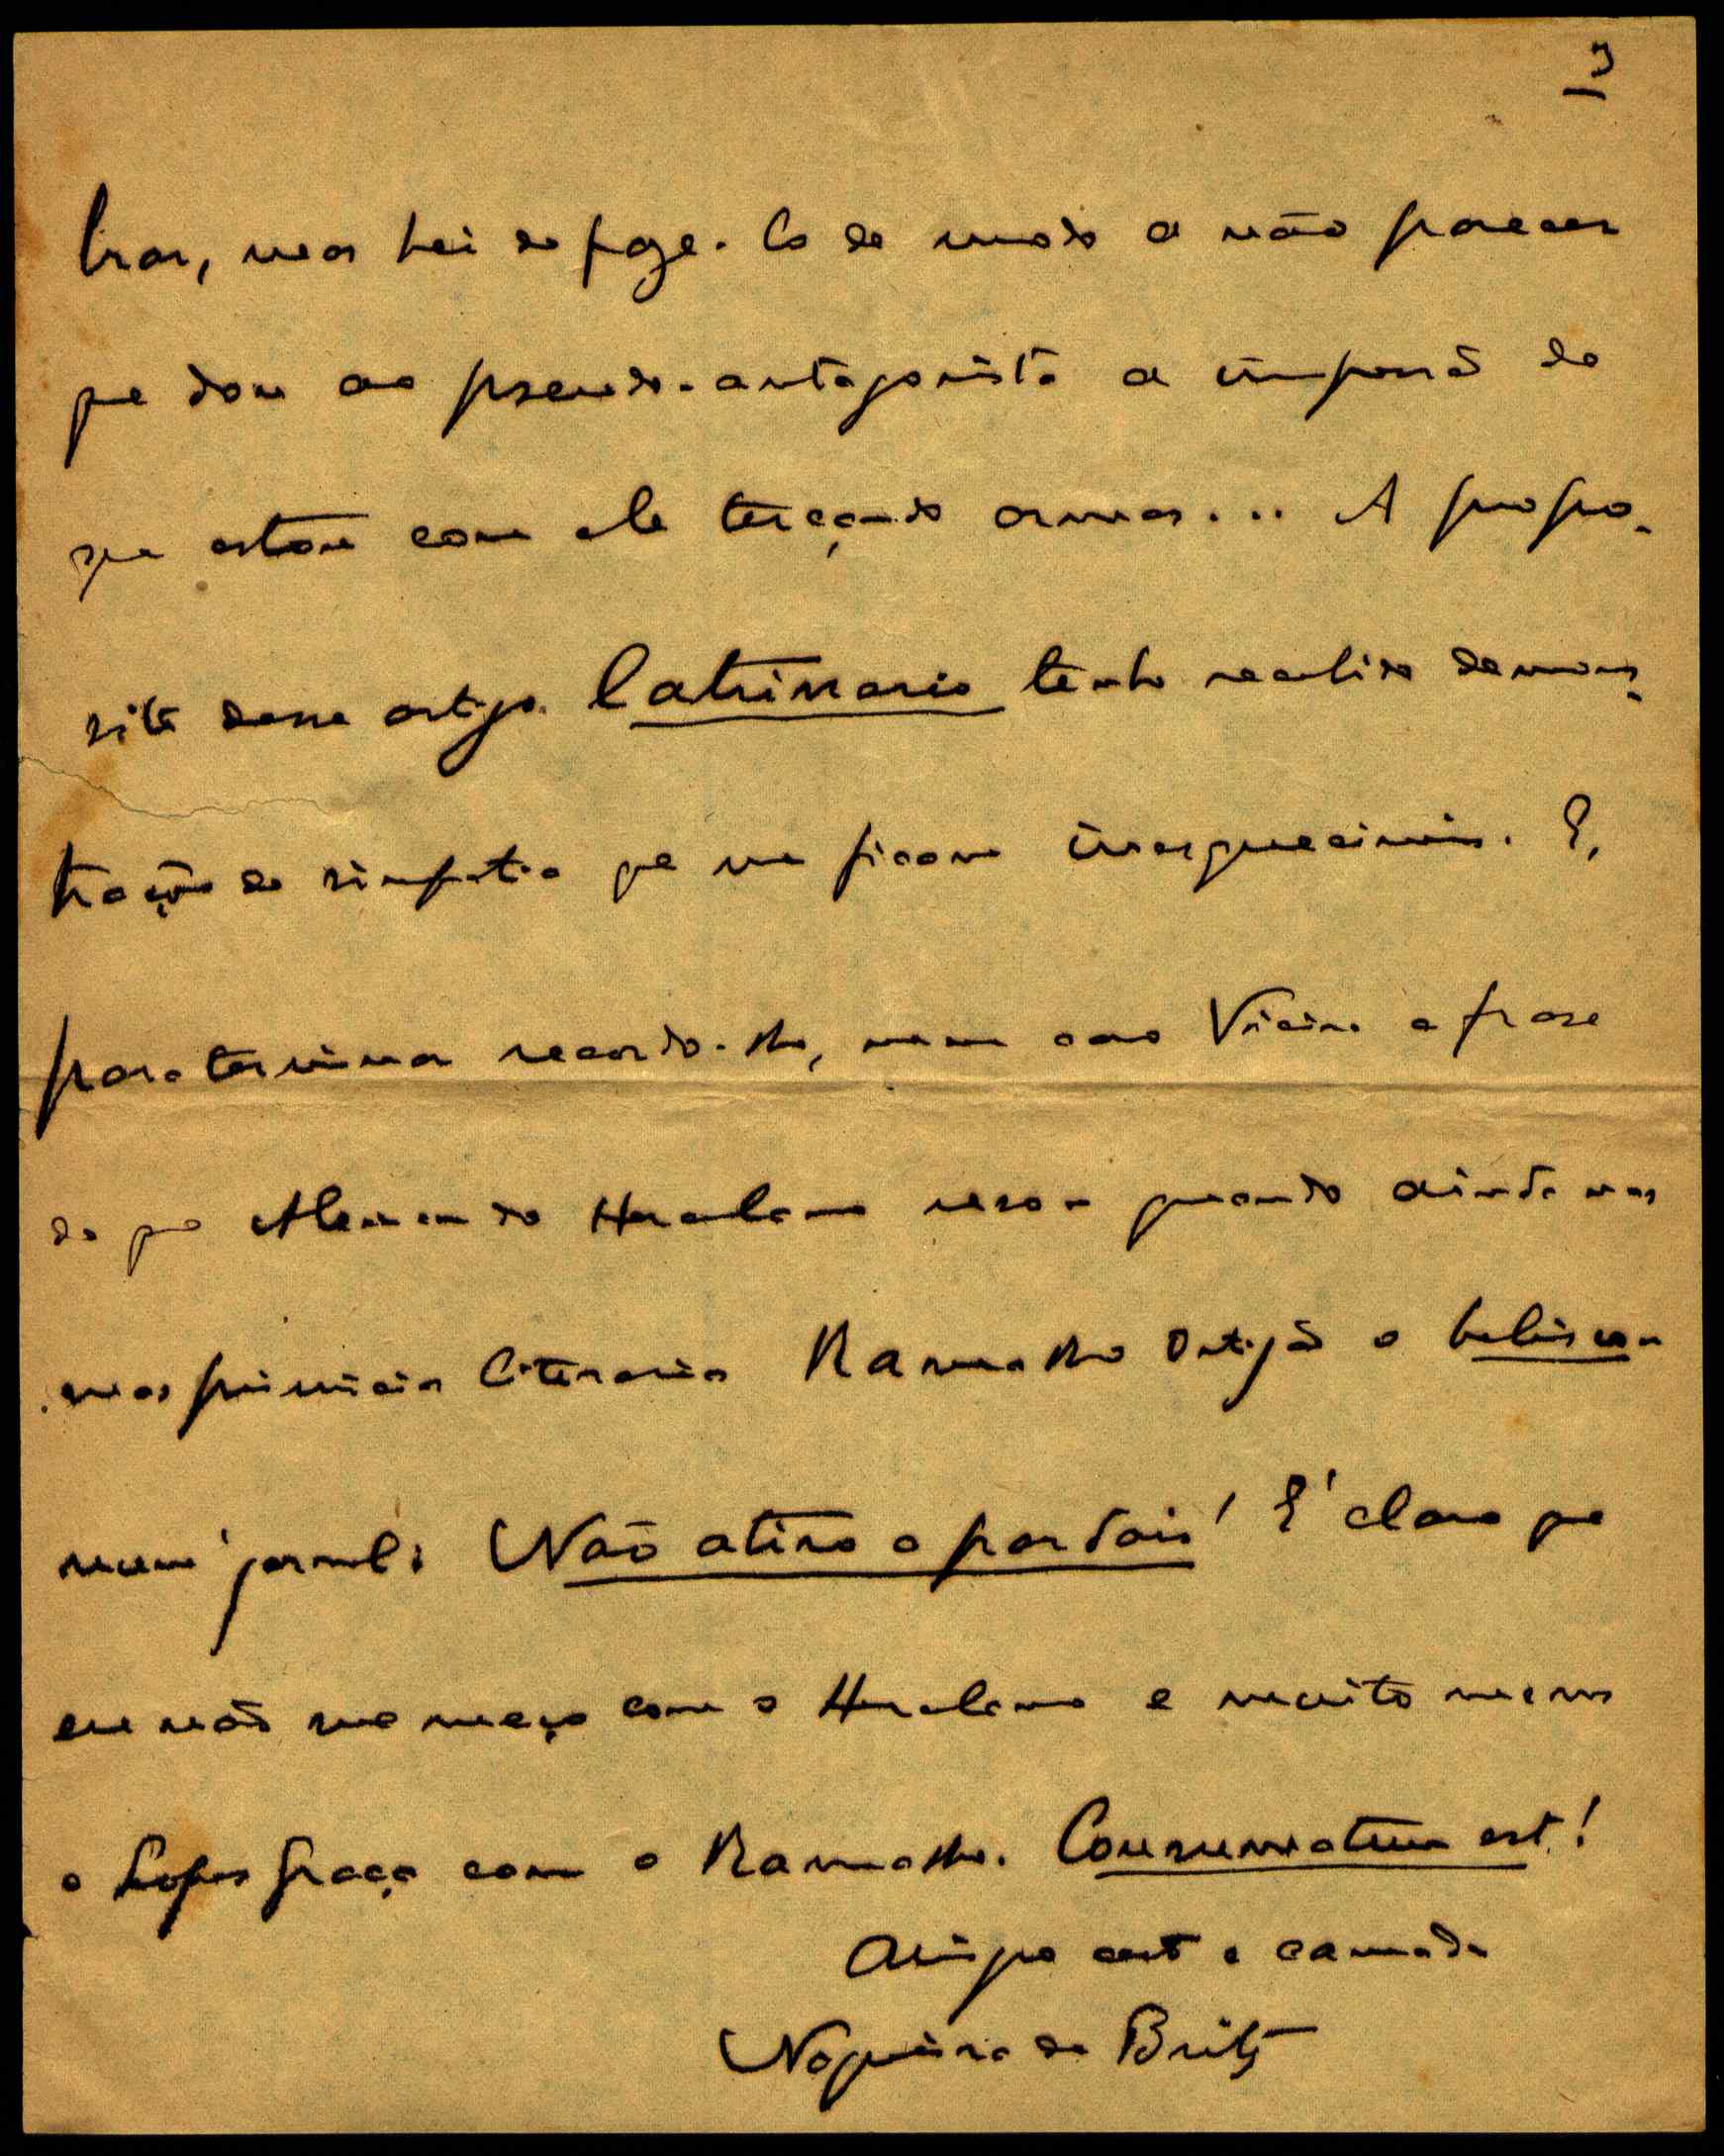 3
trar, mas hei de faze-lo de modo a não parecer
que dou ao pseudo-antagonista a impressão de
que estou com ele terçando armas... A propo-
sito desse artigo latrinario tenho recebido demons-
trações de simpatia que me ficam inesqueciveis. E,
para terminar recordo-lho, meu caro Vieira a frase
de que Alexandre Herculano usou quando ainda nas
suas primicias literarias Ramalho Ortigão o beliscou
num jornal: Não atiro a pardais! E' claro que
eu não me meço com o Herculano e muito menos
o Lopes Graça com o Ramalho. Consummatum est!
Amigo certo e camarada
Nogueira de Brito